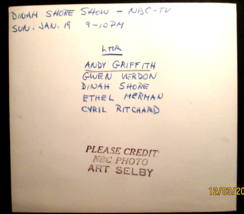 DINAH SHORE SHOW – NBC-TV
SUN. JAN. 19 9-10PM
LTOR
ANDY GRIFFITH
GWEN VERDON
DINAH SHORE
ETHEL MERMAN
CYRIL RITCHARD
PLEASE CREDIT
NBC PHOTO
ART SELBY